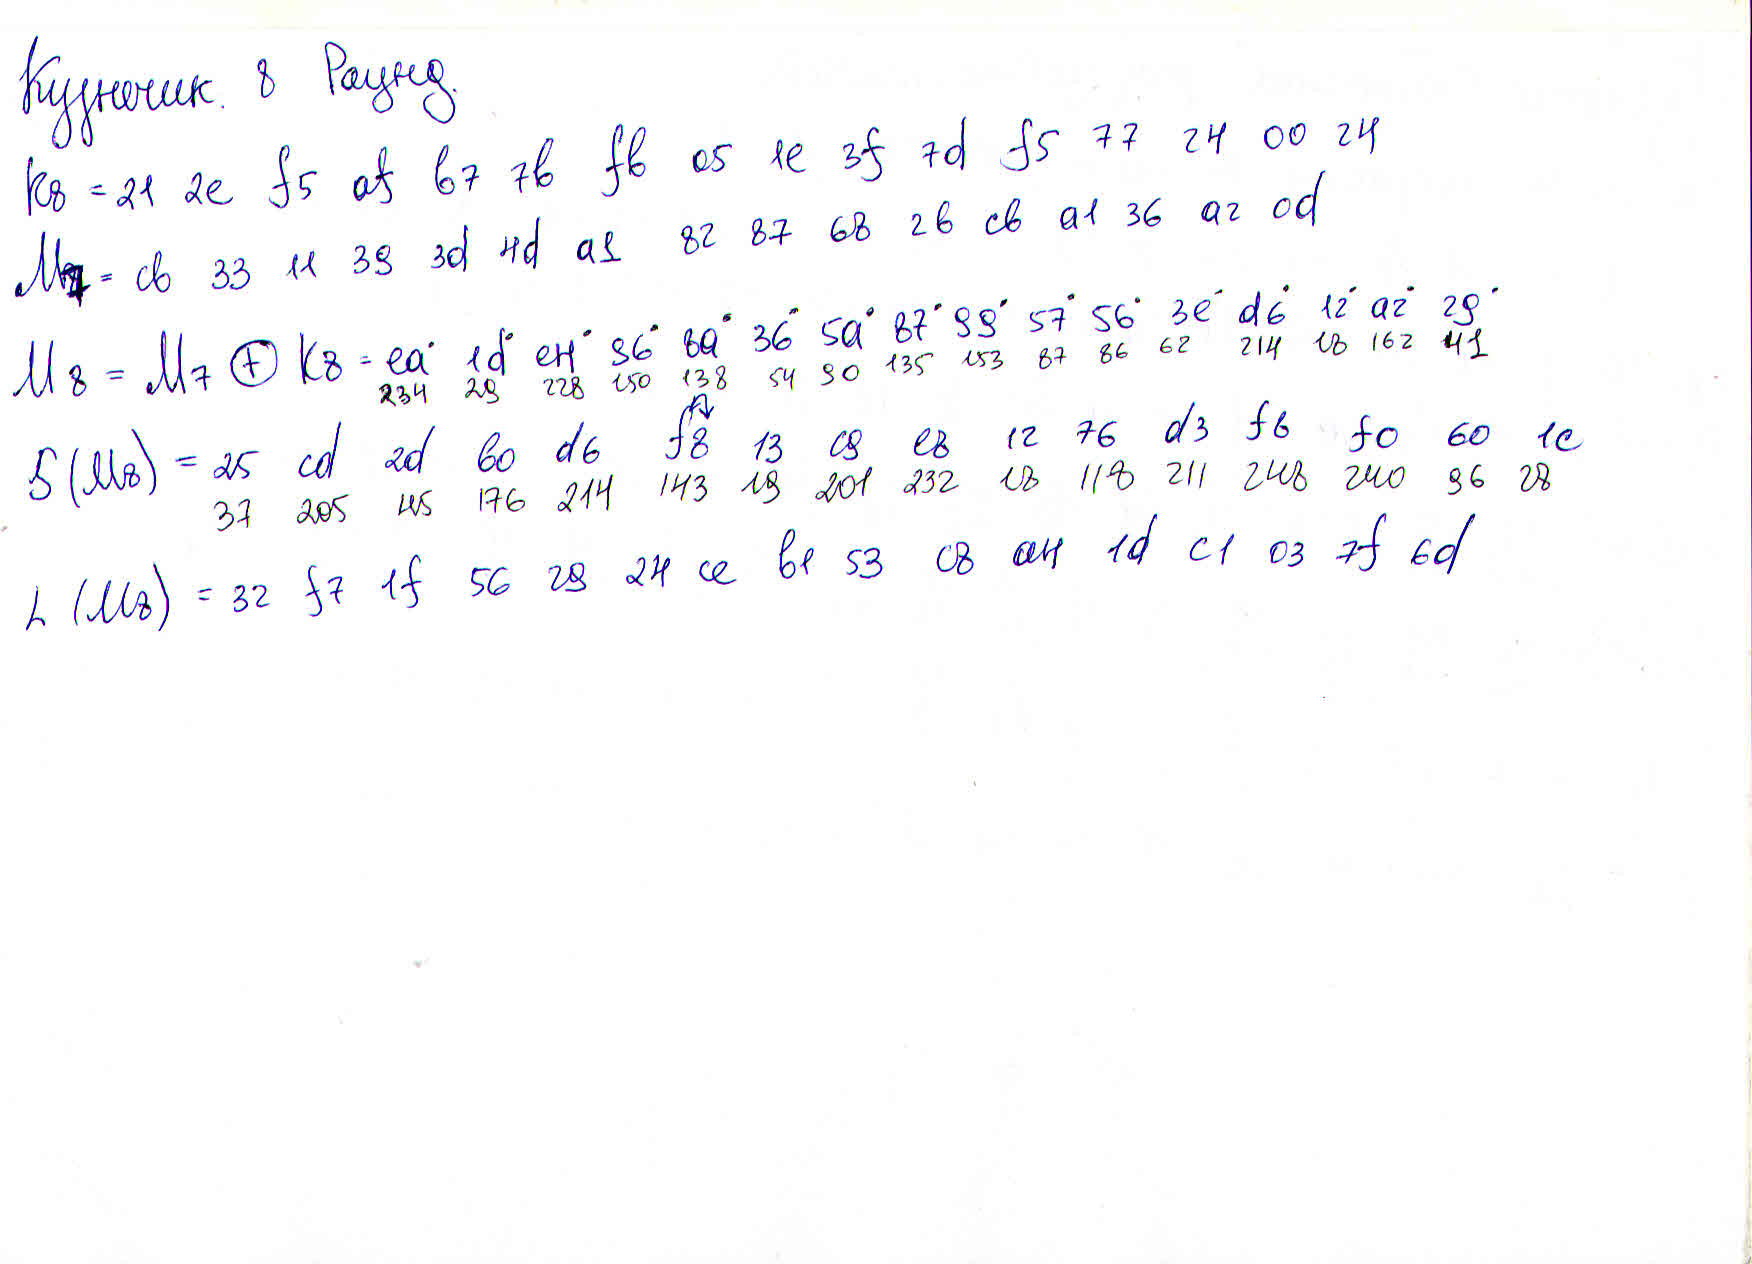 Кузнечик. 8 Раунд.
K8 = 21 2e f5 af b7 7b fb 05 1e 3f 7d f5 77 24 00 24
M7 = cb 33 11 39 3d 4d a1 82 87 68 2b cb a1 36 a2 0d
M8 = M7 ⊕ K8 = ea 1d e4 96 8a 36 5a 87 99 57 56 3e d6 12 a2 29
234 29 228 150 138 54 90 135 153 87 86 62 214 18 162 41
S(M8) = 25 cd 2d b0 d6 f8 13 c9 e8 12 76 d3 f8 f0 60 1c
37 205 45 176 214 143 19 201 232 18 118 211 248 240 96 28
L(M8) = 32 f7 1f 56 29 24 ce b1 53 c8 a4 1d c1 03 7f 6d